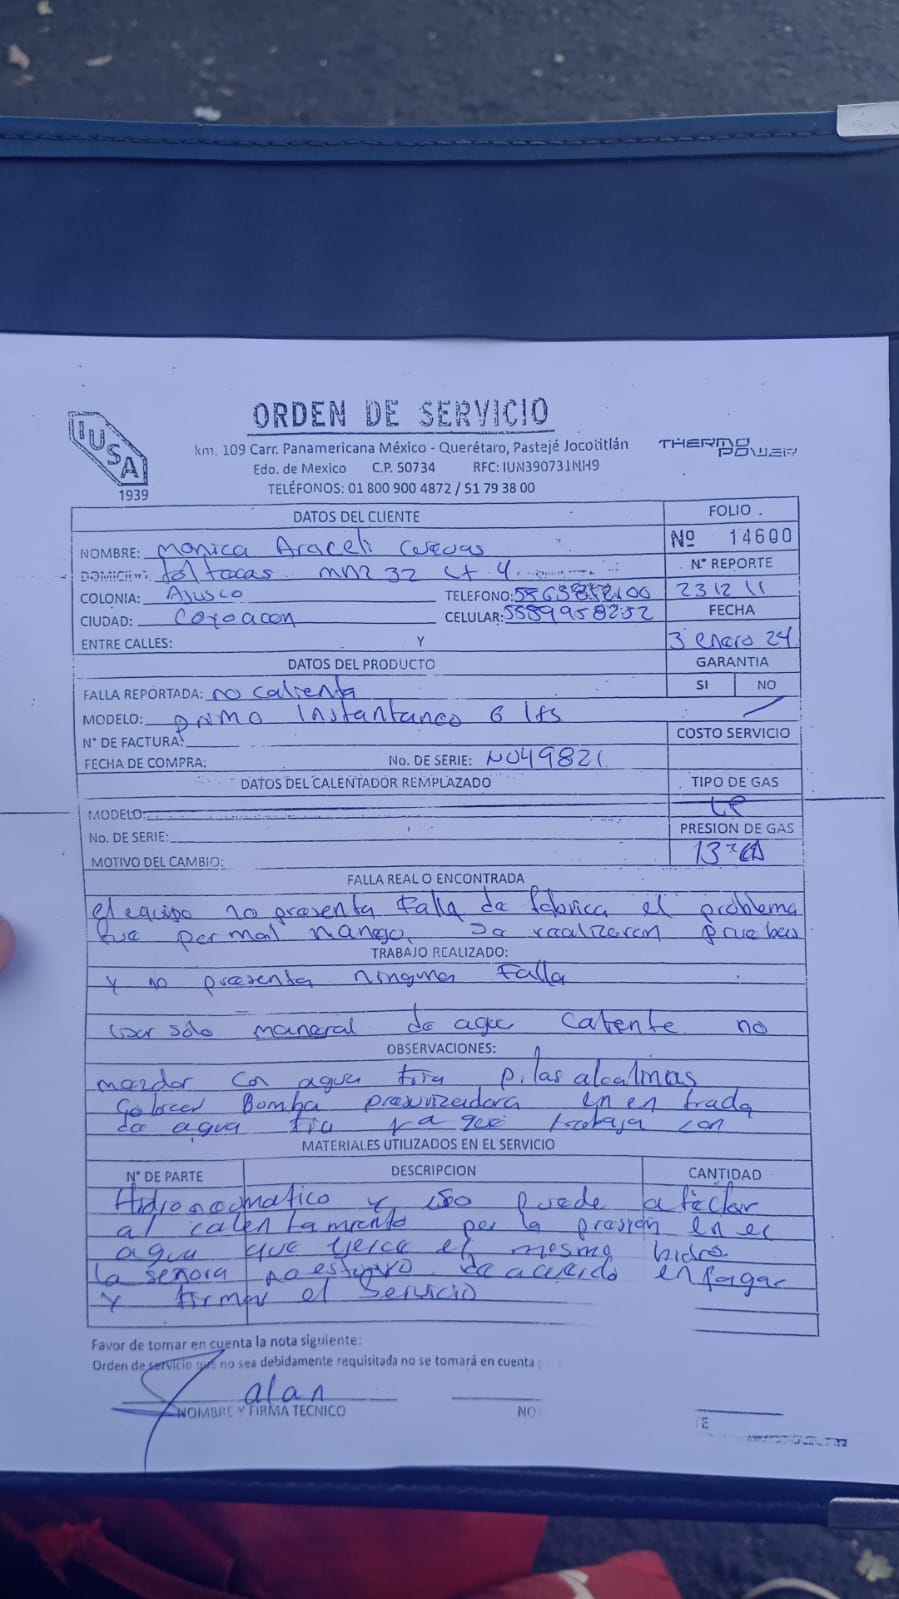 IUSA
1939
ORDEN DE SERVICIO
km. 109 Carr. Panamericana México - Querétaro, Pastejé Jocotitlán
Edo. de Mexico C.P. 50734 RFC: IUN390731NH9
TELÉFONOS: 01 800 900 4872 / 51 79 38 00
THERMO POWER
DATOS DEL CLIENTE
FOLIO
Nº 14600
NOMBRE: Monica Araceli Cuevas
N° REPORTE
DOMICILIO toltecas mnz 32 Lt 4
COLONIA: Ajusco TELEFONO: 231211
CIUDAD: Coyoacan CELULAR: 5589958252
FECHA
ENTRE CALLES: Y
3 enero 24
DATOS DEL PRODUCTO
GARANTIA
SI NO
FALLA REPORTADA: no calienta
MODELO: primo Instantaneo 6 lts
N° DE FACTURA:
COSTO SERVICIO
FECHA DE COMPRA: No. DE SERIE: N049821
DATOS DEL CALENTADOR REMPLAZADO
TIPO DE GAS
LP
MODELO:
No. DE SERIE:
PRESION DE GAS
MOTIVO DEL CAMBIO:
FALLA REAL O ENCONTRADA
el equipo no presenta Falla de fabrica el problema
fue por mal manejo. Se realizaron pruebas
TRABAJO REALIZADO:
y no presenta ninguna Falla
usar solo maneral de agua caliente no
OBSERVACIONES:
mezclar con agua fria pilas alcalinas
Colocar Bomba presurizadora en entrada
de agua fria ya que trabaja con
MATERIALES UTILIZADOS EN EL SERVICIO
N° DE PARTE DESCRIPCION CANTIDAD
Hidroneomatico y eso puede afectar
al calentamiento por la presion en el
agua que ejerce el mismo hidro
la señora no estuvo de acuerdo en pagar
y firmar el servicio
Favor de tomar en cuenta la nota siguiente:
Orden de servicio que no sea debidamente requisitada no se tomará en cuenta
alan
NOMBRE Y FIRMA TECNICO